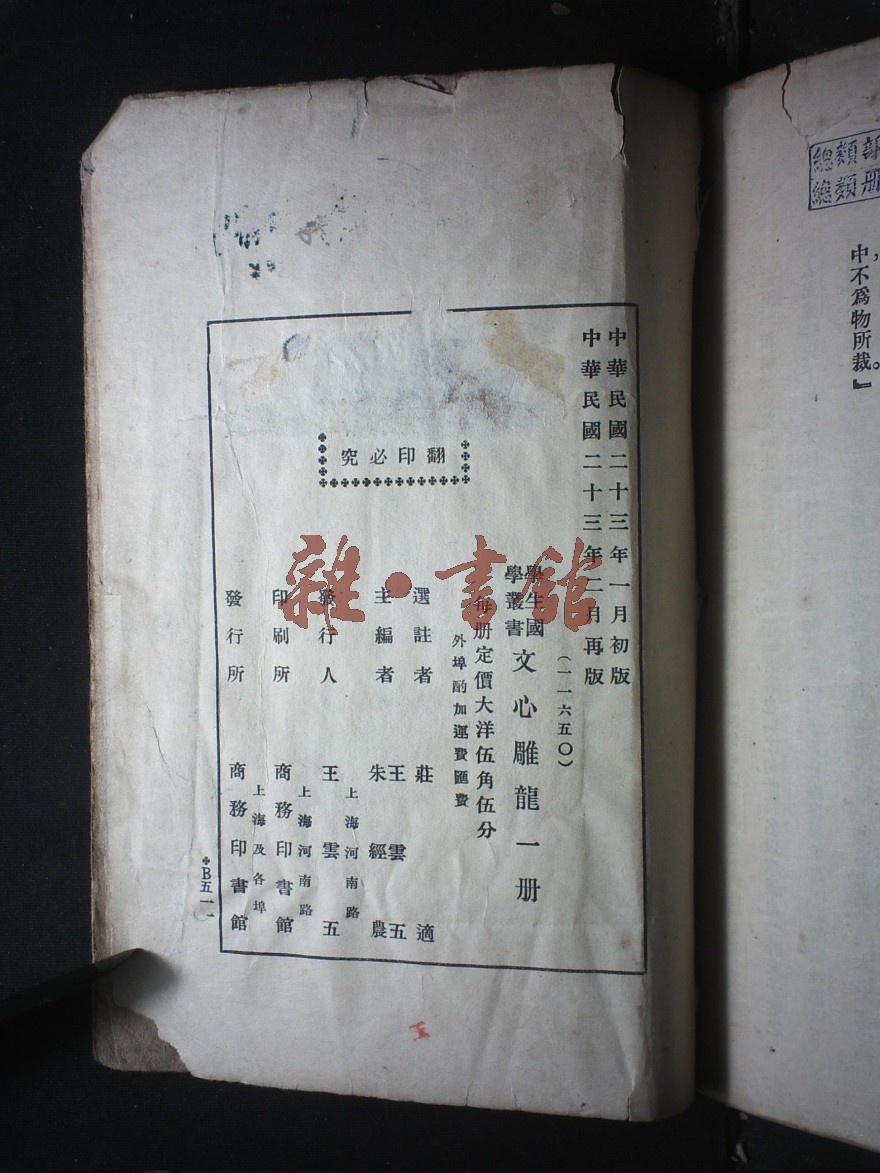 中華民國二十三年一月初版
中華民國二十三年二月再版
(一一六五〇)
學生國
學叢書
文心雕龍一册
每册定價大洋伍角伍分
外埠酌加運費匯費
選註者 莊適
主編者 王雲五
朱經農
發行人 王雲五
上海河南路
印刷所 商務印書館
上海河南路
發行所 商務印書館
上海及各埠
翻印必究
B五一一
雜·書館
中不爲物所裁。』
總類
總類
册